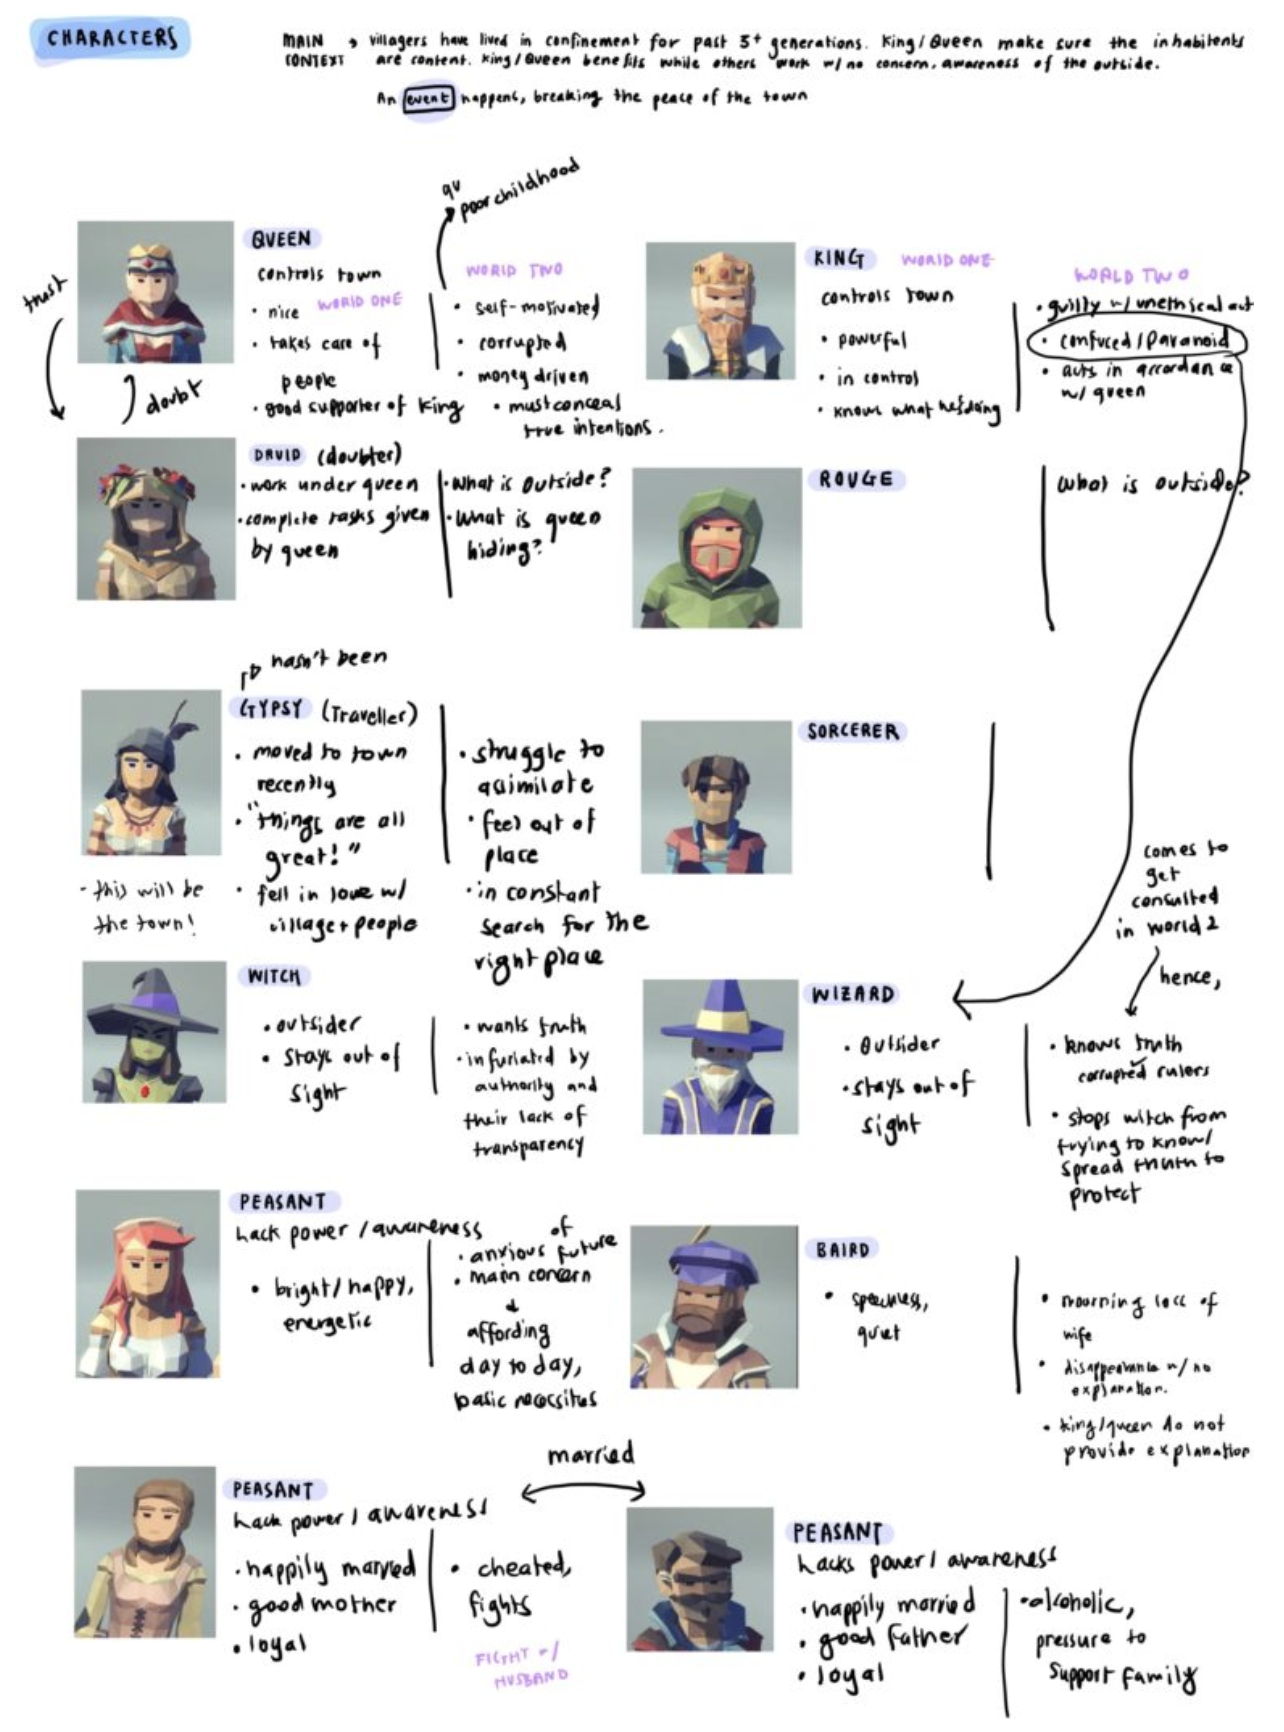 CHARACTERS
MAIN CONTEXT → villagers have lived in confinement for past 3+ generations. King/Queen make sure the inhabitents
are content. King/Queen benefits while others work w/ no concern, awareness of the outside.
An event happens, breaking the peace of the town
poor childhood
trust
doubt
QUEEN
controls town
WORLD ONE
• nice
• takes care of
people
• good supporter of King
WORLD TWO
• self-motivated
• corrupted
• money driven
• must conceal
true intentions.
KING
WORLD ONE
controls town
• powerful
• in control
• knows what he's doing
WORLD TWO
• guilty w/ unethical act
• confused/paranoid
• acts in accordance
w/ queen
DRUID (doubter)
• work under queen
• complete tasks given
by queen
• What is outside?
• What is queen
hiding?
ROUGE
what is outside?
hasn't been
GYPSY (Traveller)
• moved to town
recently
• "things are all
great!"
• fell in love w/
village + people
- this will be
the town!
• struggle to
assimilate
• feel out of
place
• in constant
search for the
right place
SORCERER
WITCH
• outsider
• stays out of
sight
• wants truth
• infuriated by
authority and
their lack of
transparency
comes to
get
consulted
in world 2
hence,
WIZARD
• Outsider
• stays out of
sight
• knows truth
corrupted rulers
• stops witch from
trying to know/
spread truth to
protect
PEASANT
Lack power / awareness
• bright/happy,
energetic
of
• anxious future
• main concern
affording
day to day,
basic necessites
BAIRD
• speechless,
quiet
• mourning loss of
wife
• disappearance w/ no
explanation.
• king/queen do not
provide explanation
married
PEASANT
Lack power / awareness
• happily married
• good mother
• loyal
• cheated,
fights
FIGHT w/
HUSBAND
PEASANT
Lacks power / awareness
• happily married
• good father
• loyal
• alcoholic,
pressure to
support family